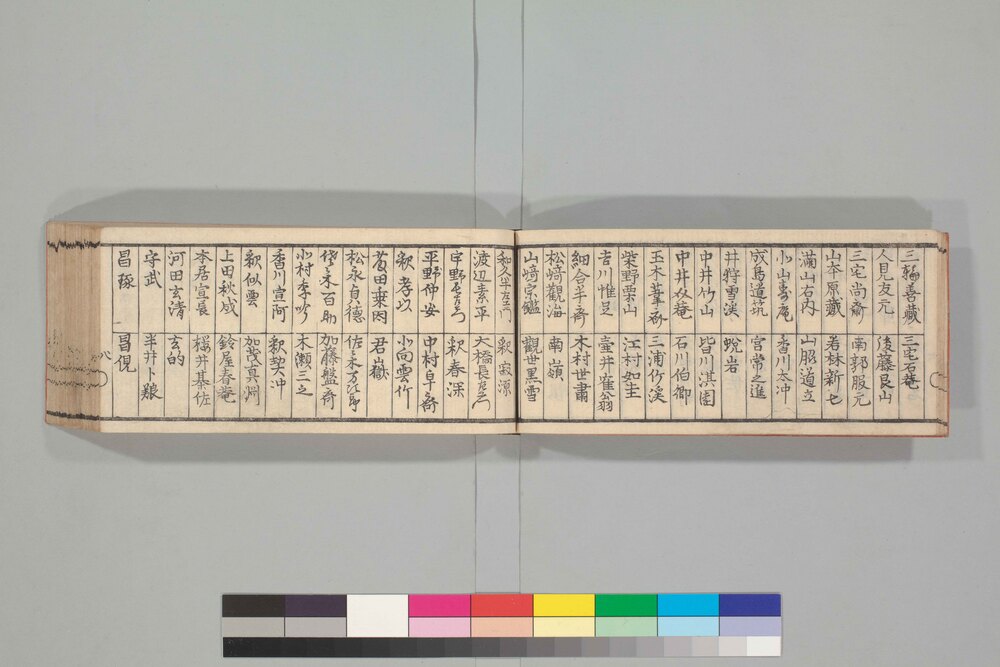 三輪善藏　三宅石菴
人見友元　後藤艮山
三宅尚齋　南郭服元
山本原藏　若林新七
滿山右内　山脇道立
小山壽庵　香川太冲
成島道筑　宮常之進
井狩雪溪　蛻岩
中井竹山　皆川淇園
中井以菴　石川伯卿
玉木葦斎　三浦竹溪
柴野栗山　江村如圭
吉川惟足　壷井崔翁
細合半斎　木村世肅
松﨑觀海　南嶺
山﨑宗鑑　觀世黒雪
和久半左エ門　釈寂源
渡辺素平　大橋長左エ門
宇野　釈春深
平野仲安　中村阜斎
釈孝以　小向雲竹
萬田乗因　君山巌
松永貞徳　佐々木
佐々木百助　加藤盤斎
北村季吟　木瀬三之
香川宣阿　釈契冲
釈似雲　加茂真渊
上田秋成　鈴屋春菴
本居宣長　櫻井基佐
河田玄清　玄的
守武　半井卜養
昌琢　昌俔
八